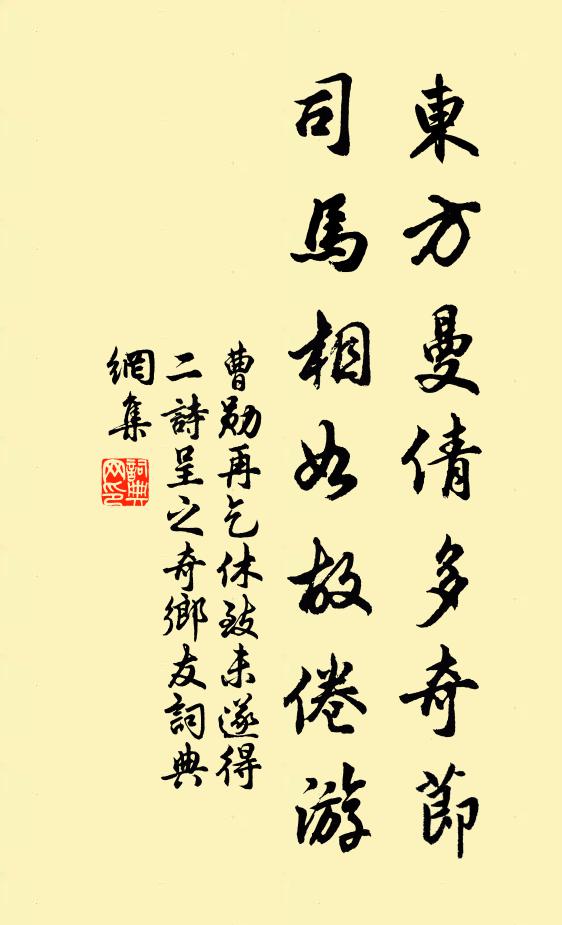 東方曼倩多奇節
司馬相如故倦游
曹勛再乞休致未遂得
二詩呈之奇鄉友詞典
網集
詞典網印